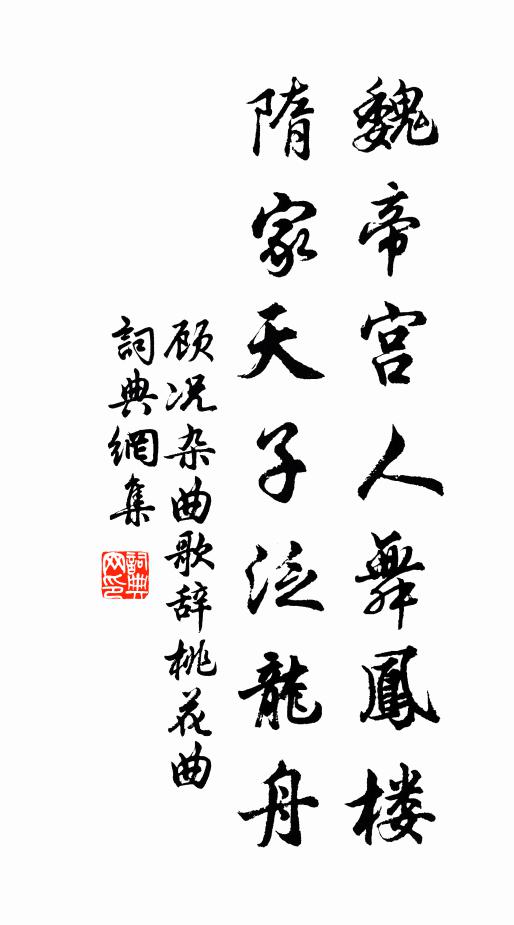 魏帝宫人舞鳳楼
隋家天子泛龍舟
顾况杂曲歌辞桃花曲
詞典網集
詞典网印